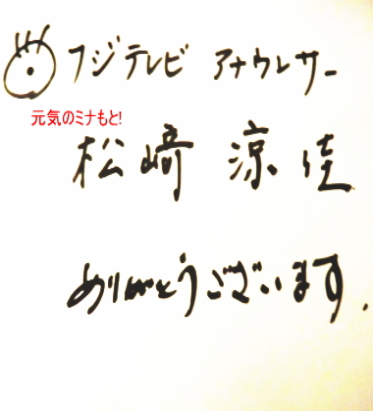 フジテレビ アナウンサー
元気のミナもと!
松﨑 涼佳
ありがとうございます.